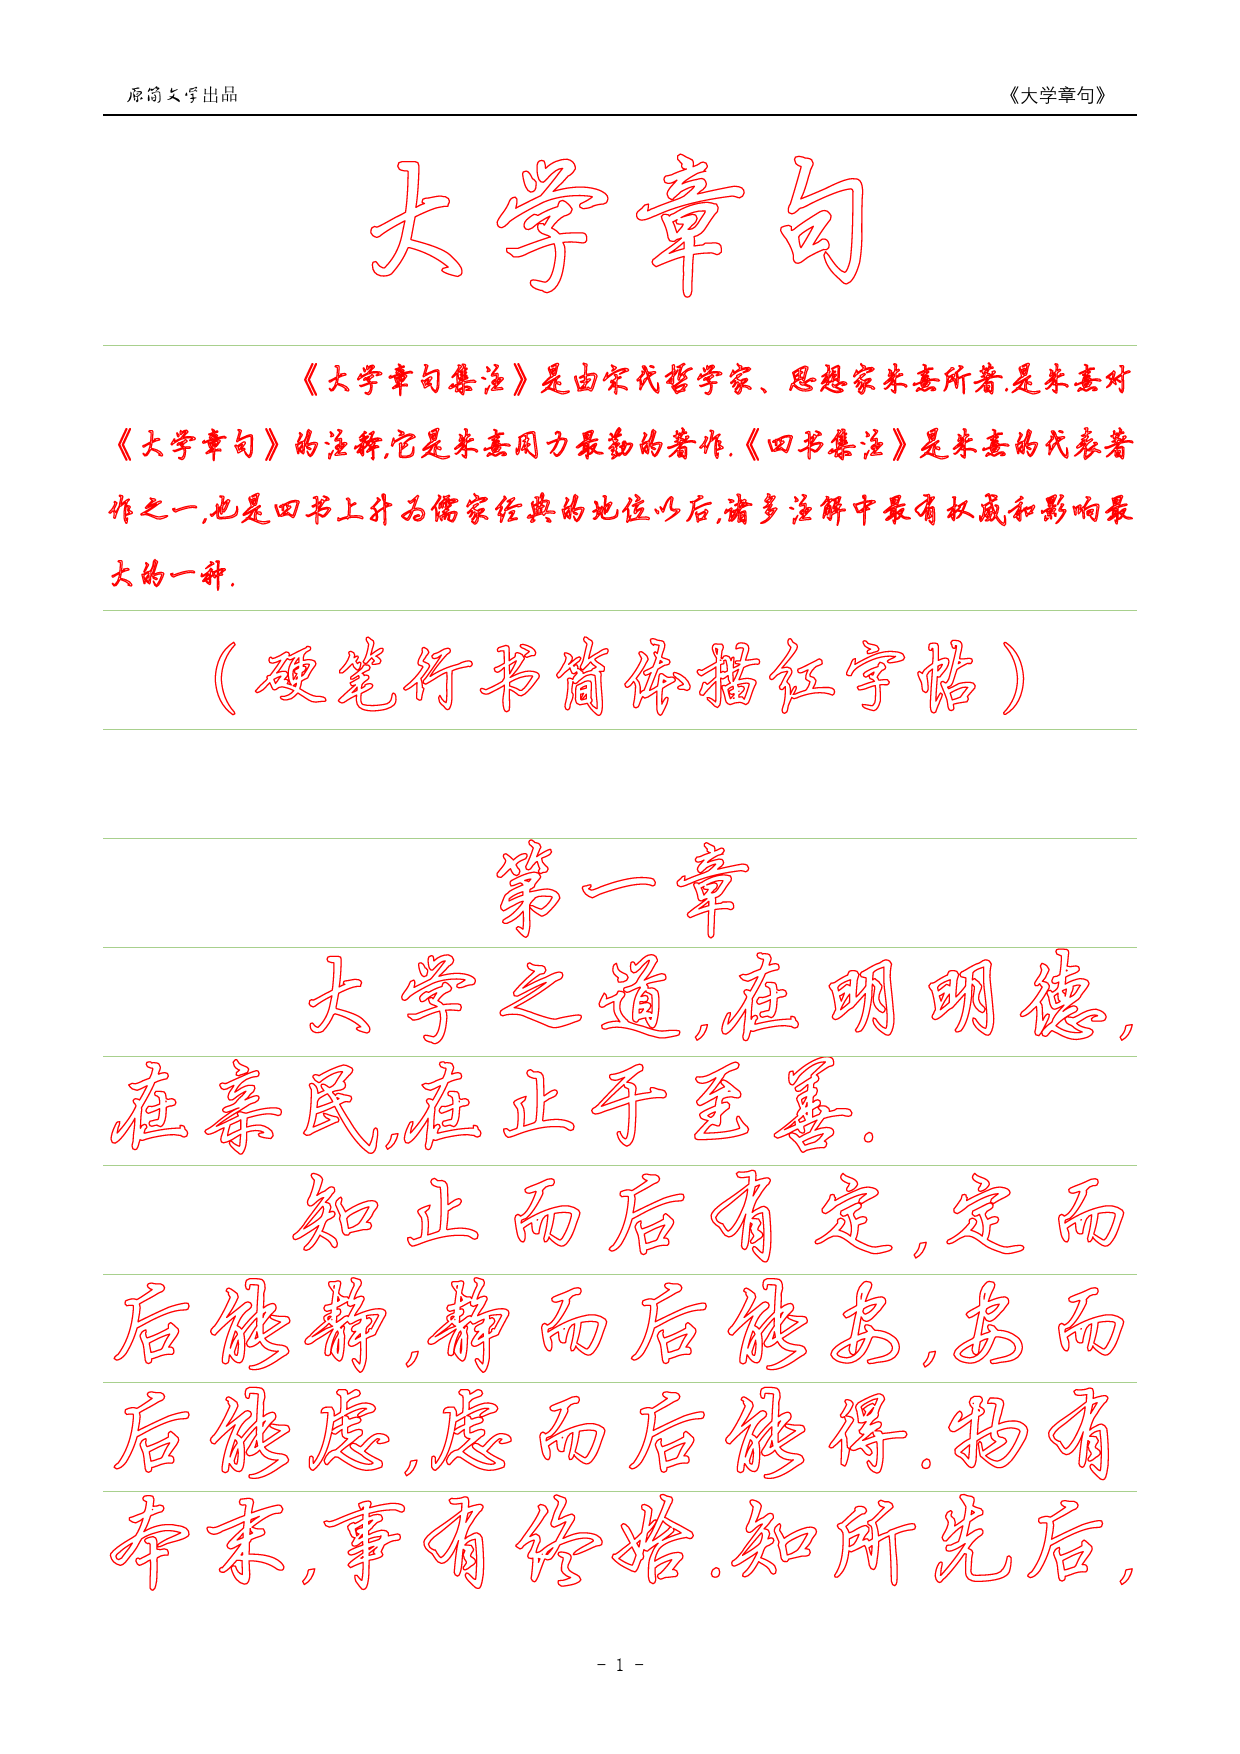 原简文学出品 《大学章句》
大学章句
《大学章句集注》是由宋代哲学家、思想家朱熹所著.是朱熹对
《大学章句》的注释,它是朱熹用力最勤的著作.《四书集注》是朱熹的代表著
作之一,也是四书上升为儒家经典的地位以后,诸多注解中最有权威和影响最
大的一种.
(硬笔行书简体描红字帖)
第一章
大学之道,在明明德,
在亲民,在止于至善.
知止而后有定,定而
后能静,静而后能安,安而
后能虑,虑而后能得.物有
本末,事有终始.知所先后,
- 1 -